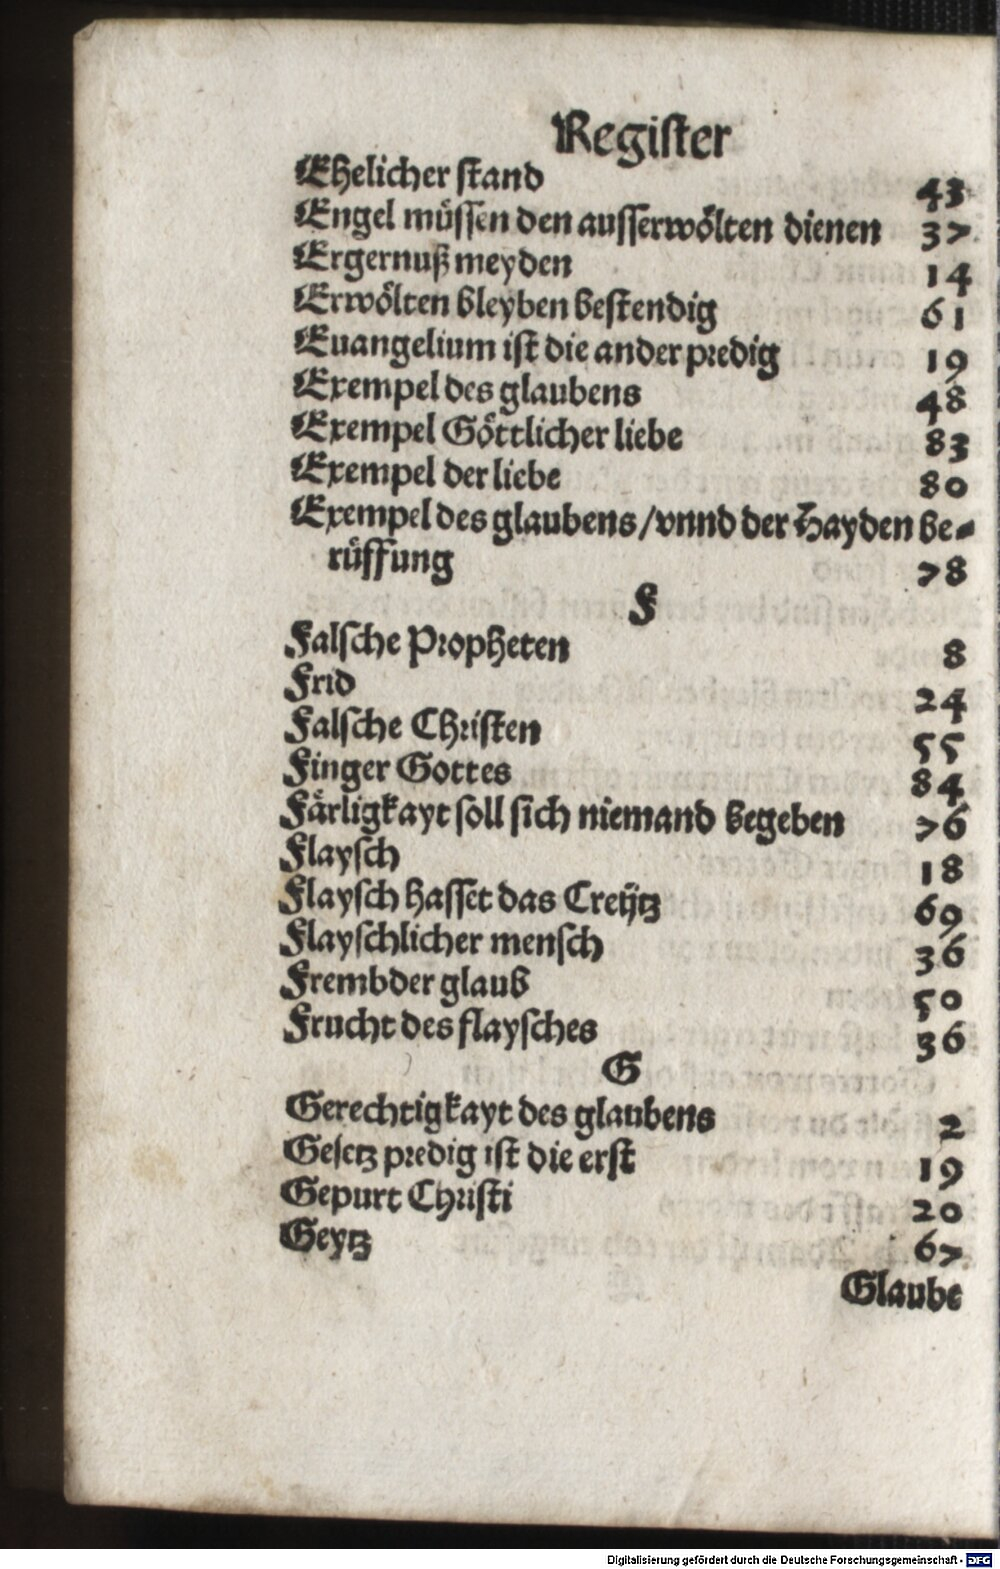 Register
Ehelicher stand 43
Engel müssen den ausserwölten dienen 37
Ergernuß meyden 14
Erwölten bleyben bestendig 61
Euangelium ist die ander predig 19
Exempel des glaubens 48
Exempel Göttlicher liebe 83
Exempel der liebe 80
Exempel des glaubens/vnnd der Hayden be-
rüffung 78
F
Falsche Propheten 8
Frid 24
Falsche Christen 55
Finger Gottes 84
Färligkayt soll sich niemand begeben 76
Flaysch 18
Flaysch hasset das Creütz 69
Flayschlicher mensch 36
Frembder glaub 50
Frucht des flaysches 36
G
Gerechtigkayt des glaubens 2
Gesetz predig ist die erst 19
Gepurt Christi 20
Geytz 67
Glaube
Digitalisierung gefördert durch die Deutsche Forschungsgemeinschaft - DFG